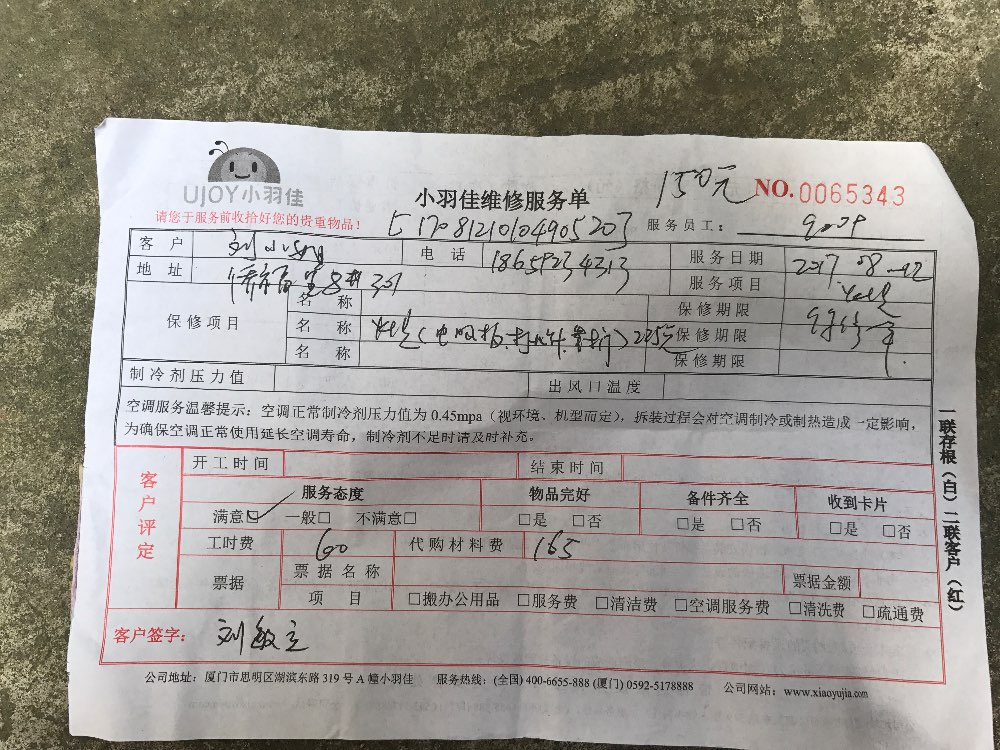 UJOY小羽佳
小羽佳维修服务单
150元
NO.0065343
请您于服务前收拾好您的贵重物品！
服务员工：
客户 刘小 电话 18659234313 服务日期 2017.08
地址 301 服务项目
保修项目
名称 保修期限
名称 225元 保修期限
名称 保修期限
制冷剂压力值 出风口温度
空调服务温馨提示：空调正常制冷剂压力值为 0.45mpa（视环境、机型而定），拆装过程会对空调制冷或制热造成一定影响，
为确保空调正常使用延长空调寿命，制冷剂不足时请及时补充。
一联存根（白）二联客户（红）
客户评定
开工时间 结束时间
服务态度 物品完好 备件齐全 收到卡片
满意☑ 一般□ 不满意□ □是 □否 □是 □否 □是 □否
工时费 60 代购材料费 165
票据 票据名称 票据金额
项目 □搬办公用品 □服务费 □清洁费 □空调服务费 □清洗费 □疏通费
客户签字： 刘敏立
公司地址：厦门市思明区湖滨东路 319 号 A 幢小羽佳 服务热线：(全国) 400-6655-888 (厦门) 0592-5178888 公司网站：www.xiaoyujia.com